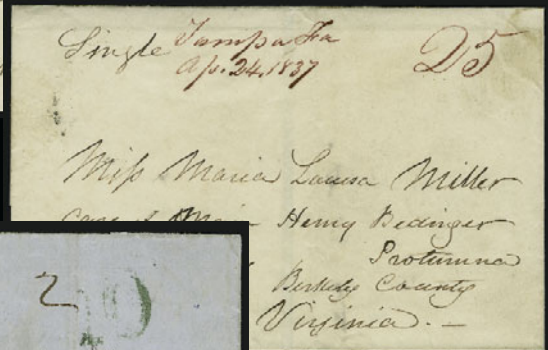 Single Tampa Fa 25
Ap. 24. 1837
Miss Maria Louisa Miller
Care of Major Henry Bedinger
Berkeley County
Virginia. —
2 10